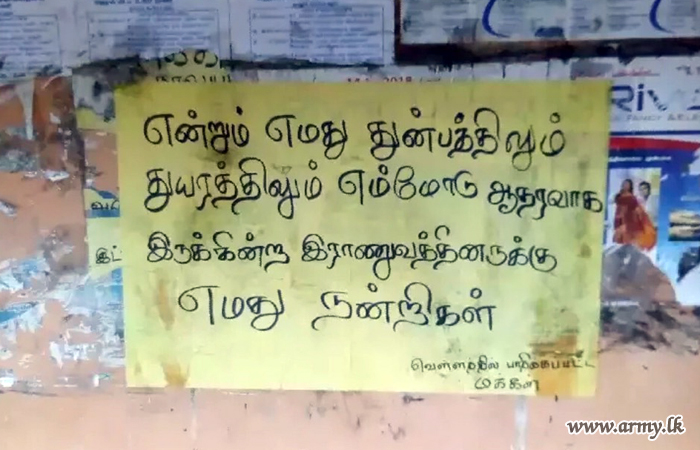 என்றும் எமது துன்பத்திலும்
துயரத்திலும் எம்மோடு ஆதரவாக
இருக்கின்ற இராணுவத்தினருக்கு
எமது நன்றிகள்
வெள்ளத்தில் பாதிக்கப்பட்ட
மக்கள்
www.army.lk